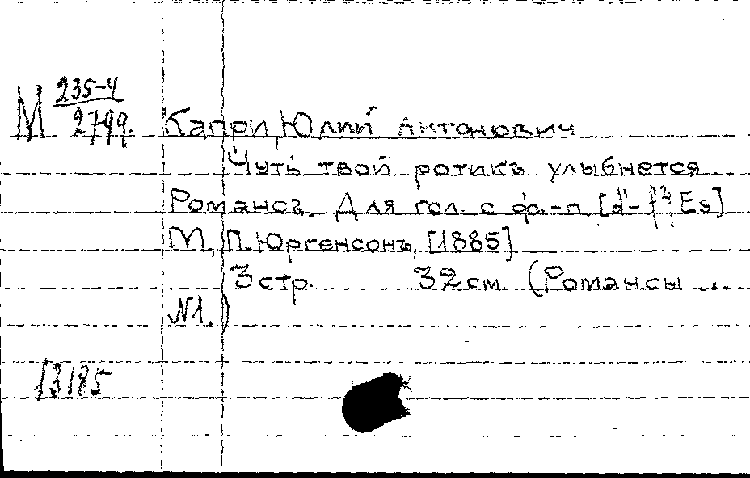 М 235-4
2799. Капри, Юлий Антонович
Чуть твой ротикъ улыбнется...
Романсъ. Для гол. с ф.-п. [d'-f², Es]
М., П. Юргенсонъ, [1885]
3 стр. 32 см. (Романсы ...
№1.)
13185